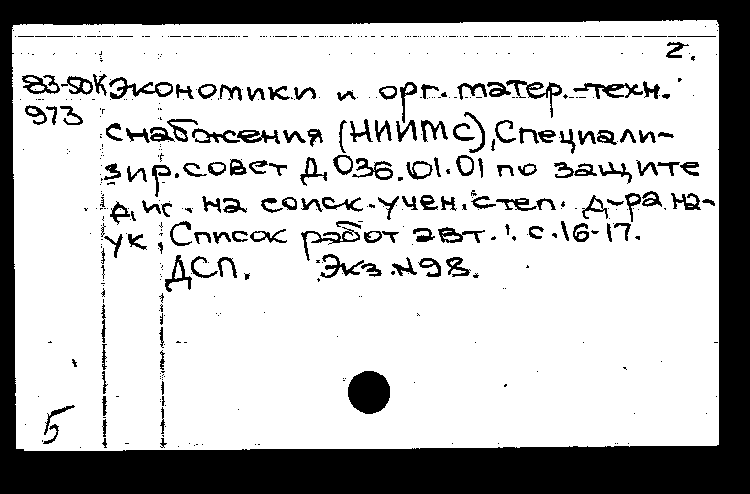 2.
83-50К Экономики и орг. матер.-техн.
973
снабжения (НИИМС), Специали-
зир. совет Д.036.01.01 по защите
дис. на соиск. учен. степ. д-ра на-
ук. Список работ авт.: с.16-17.
ДСП. Экз. №98.
5